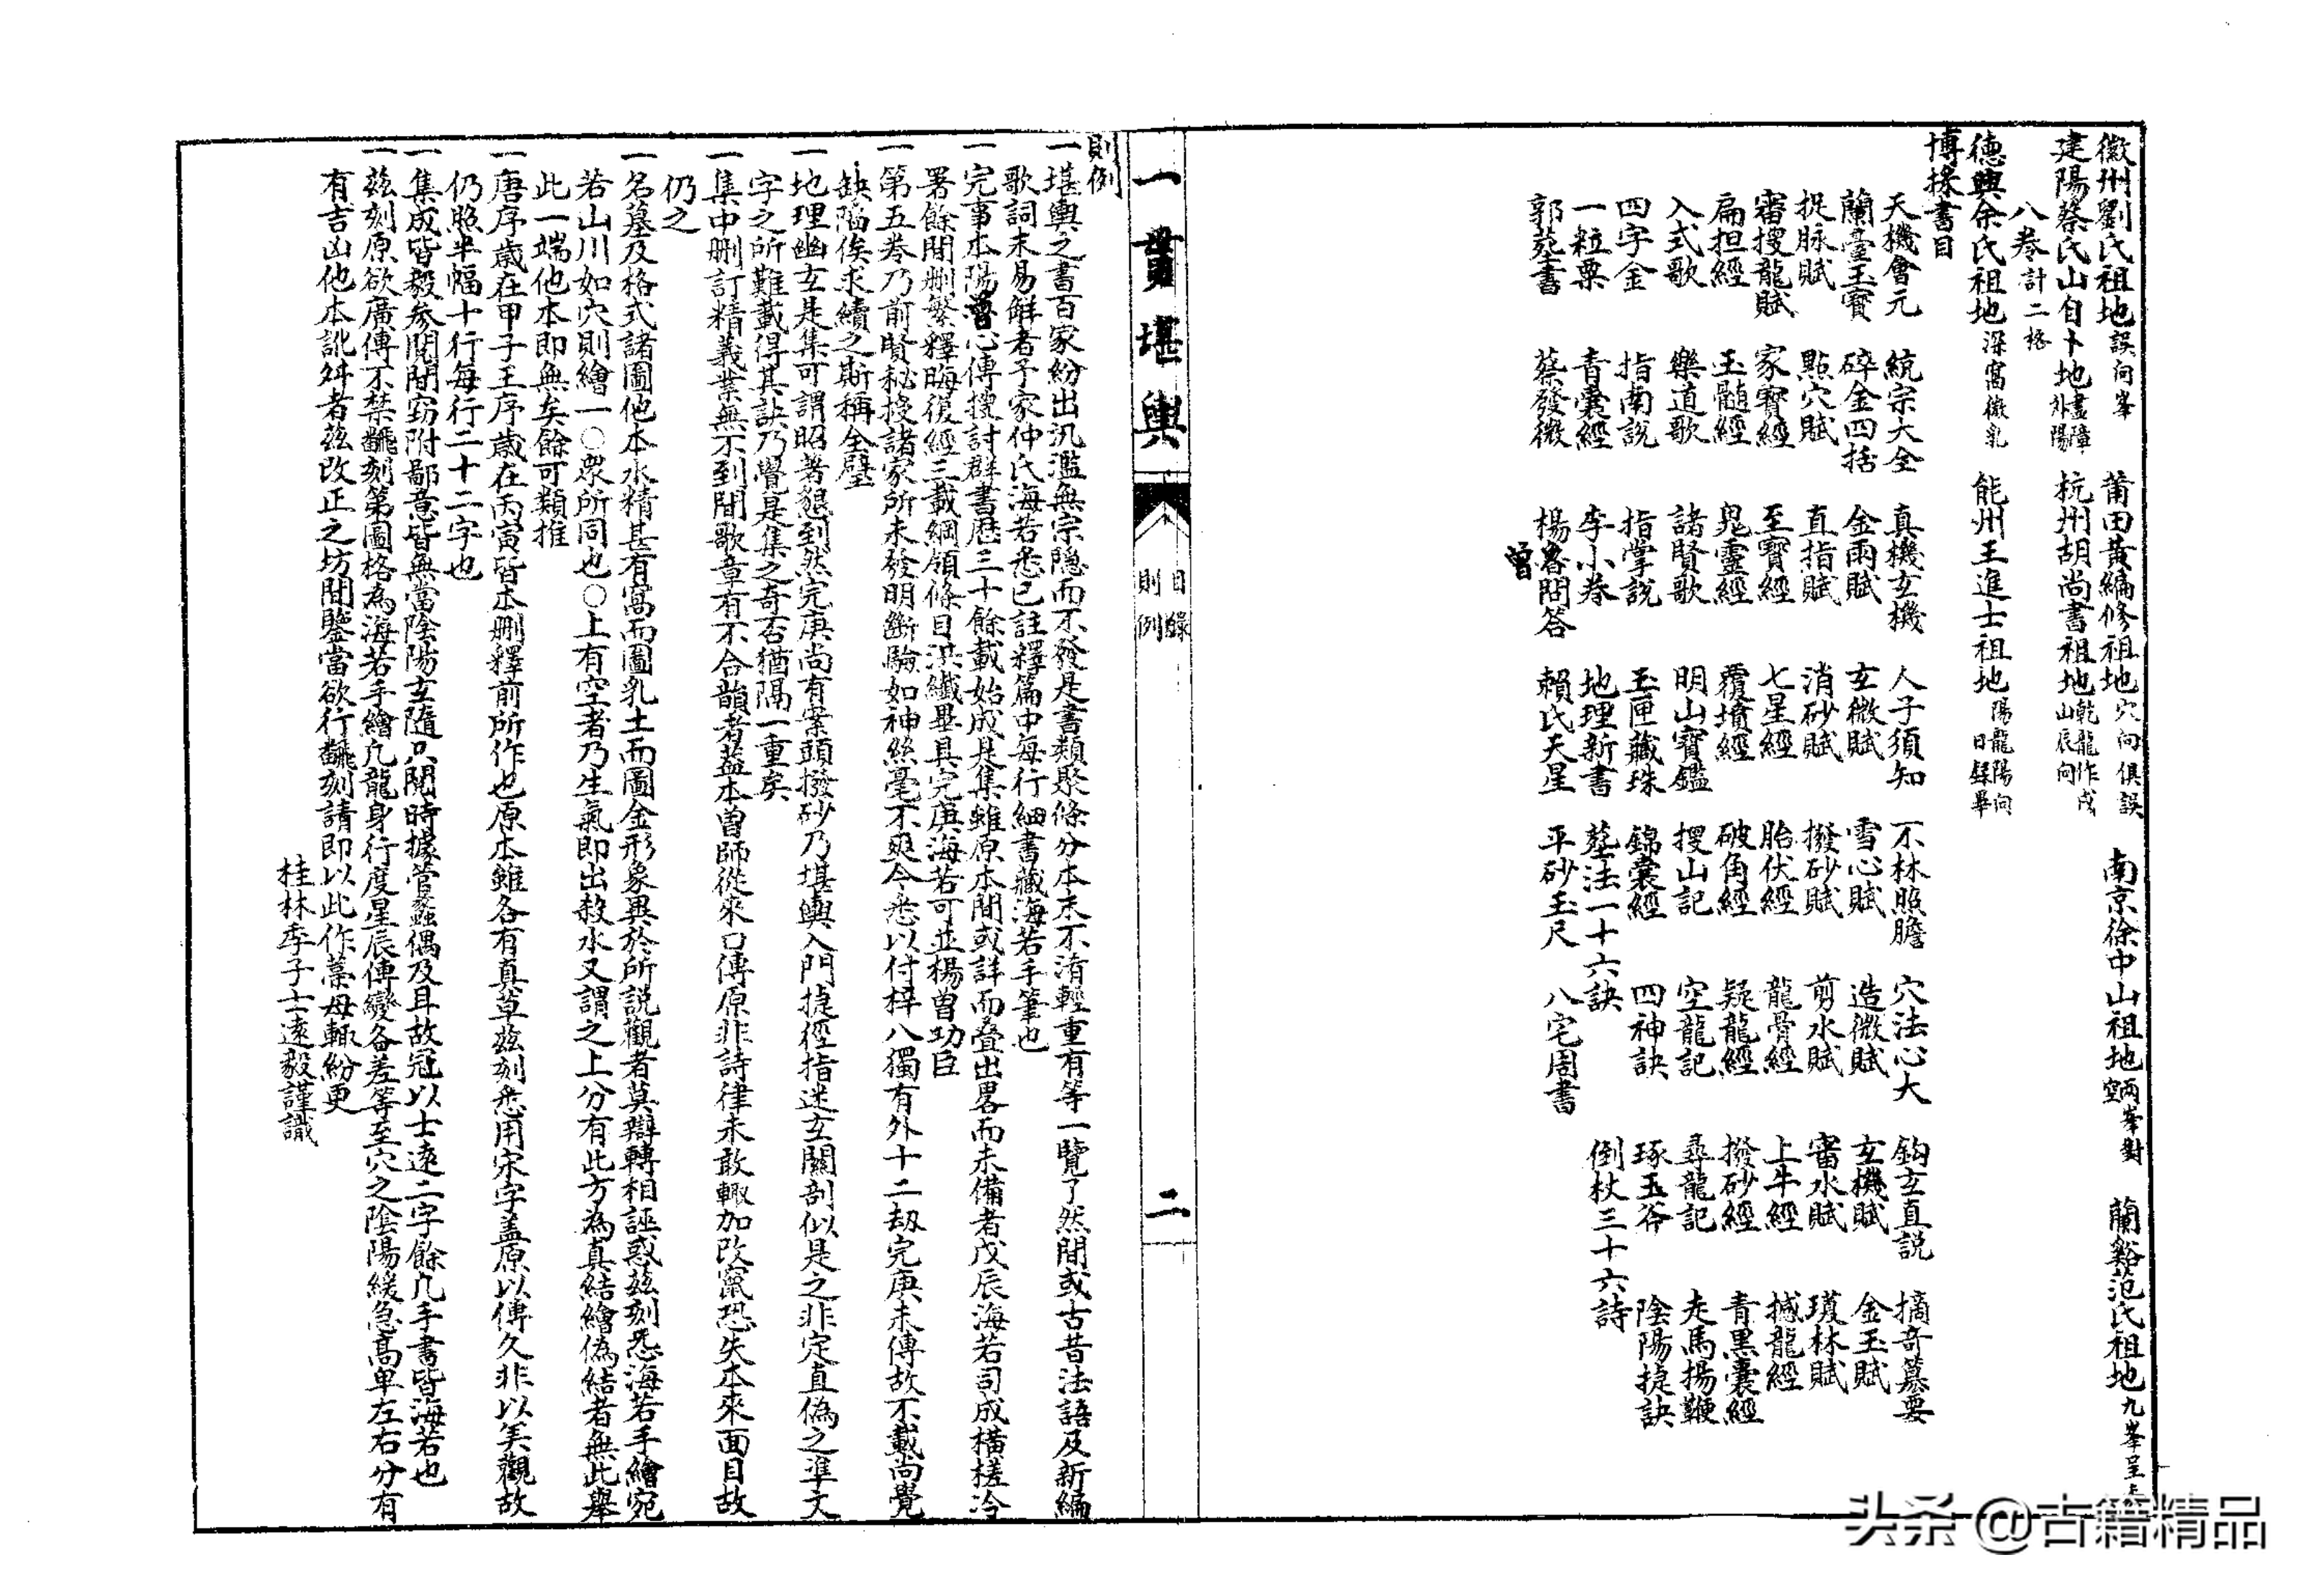 徽州劉氏祖地 誤向峯 莆田黃編修祖地 穴向俱誤 南京徐中山祖地 兩峯對 蘭谿范氏祖地 九峯呈
建陽蔡氏山自卜地 盡障外陽 杭州胡尚書祖地 乾龍作戌山辰向
八卷 計二格
德興余氏祖地 深窩微乳 能州王進士祖地 陽龍陽向 目錄畢
博採書目
天機會元 統宗大全 真機玄機 人子須知 不林照膽 穴法心大 鈎玄直説 摘竒纂要
蘭臺玉寶 碎金四括 金兩賦 玄微賦 雪心賦 造微賦 玄機賦 金玉賦
捉脉賦 點穴賦 直指賦 消砂賦 撥砂賦 剪水賦 審水賦 瓊林賦
審搜龍賦 家寶經 至寶經 七星經 胎伏經 龍骨經 上牛經 撼龍經
扁担經 玉髓經 鬼靈經 覆墳經 破角經 疑龍經 撥砂經 青黑囊經
入式歌 樂道歌 諸賢歌 明山寶鑑 搜山記 空龍記 尋龍記 走馬揚鞭
四字金 指南說 指掌說 玉匣藏珠 錦囊經 四神訣 琢玉斧 陰陽捷訣
一粒粟 青囊經 李小卷 地理新書 塟法一十六訣 倒杖三十六詩
郭塟書 蔡發微 楊曾問答 賴氏天星 平砂玉尺 八宅周書
曾
一貫堪輿
目錄
則例
二
則例
一堪輿之書百家紛出汎濫無宗隱而不發是書類聚條分本末不淆輕重有等一覽了然間或古昔法語及新編
歌詞未易解者予家仲氏海若悉已註釋篇中每行細書藏海若手筆也
一完事本陽曾心傳搜討群書歷三十餘載始成是集雖原本間或詳而叠出畧而未備者戊辰海若司成橫槎冷
署餘閒删繁釋晦復經三載綱領條目洪纖畢具完庚海若可並楊曾功臣
一第五卷乃前賢秘授諸家所未發明斷驗如神絲毫不爽今悉以付梓八獨有外十二刼完庚未傳故不載尚覺
缺陷俟求續之斯稱全璧
一地理幽玄是集可謂昭著懇到然完庚尚有案頭撥砂乃堪輿入門捷徑指迷玄關剖似是之非定直偽之準文
字之所難載得其訣乃覺是集之奇否猶隔一重矣
一集中删訂精義業無不到間歌章有不合韻者葢本曾師從來口傳原非詩律未敢輙加改竄恐失本來面目故
仍之
一名墓及格式諸圖他本水精甚有窩而圖乳土而圖金形象異於所說觀者莫辯轉相誣惑茲刻悉海若手繪宛
若山川如穴則繪一○衆所同也○上有空者乃生氣即出殺水又謂之上分有此方為真結繪偽結者無此舉
此一端他本即無矣餘可類推
一唐序歲在甲子王序歲在丙寅皆本删釋前所作也原本雖各有真草茲刻悉用宋字盖原以傳久非以美觀故
仍照半幅十行每行二十二字也
一集成皆毅參閱間窃附鄙意皆無當陰陽玄隨只閱時據管蠡偶及耳故冠以士遠二字餘凡手書皆海若也
一茲刻原欲廣傳不禁飜刻第圖格為海若手繪凡龍身行度星辰傳變各差等至穴之陰陽緩急高卑左右分有
有吉凶他本訛舛者茲改正之坊間鑒當欲行飜刻請即以此作藁毋輙紛更
桂林季子士遠毅謹識
头条@古籍精品